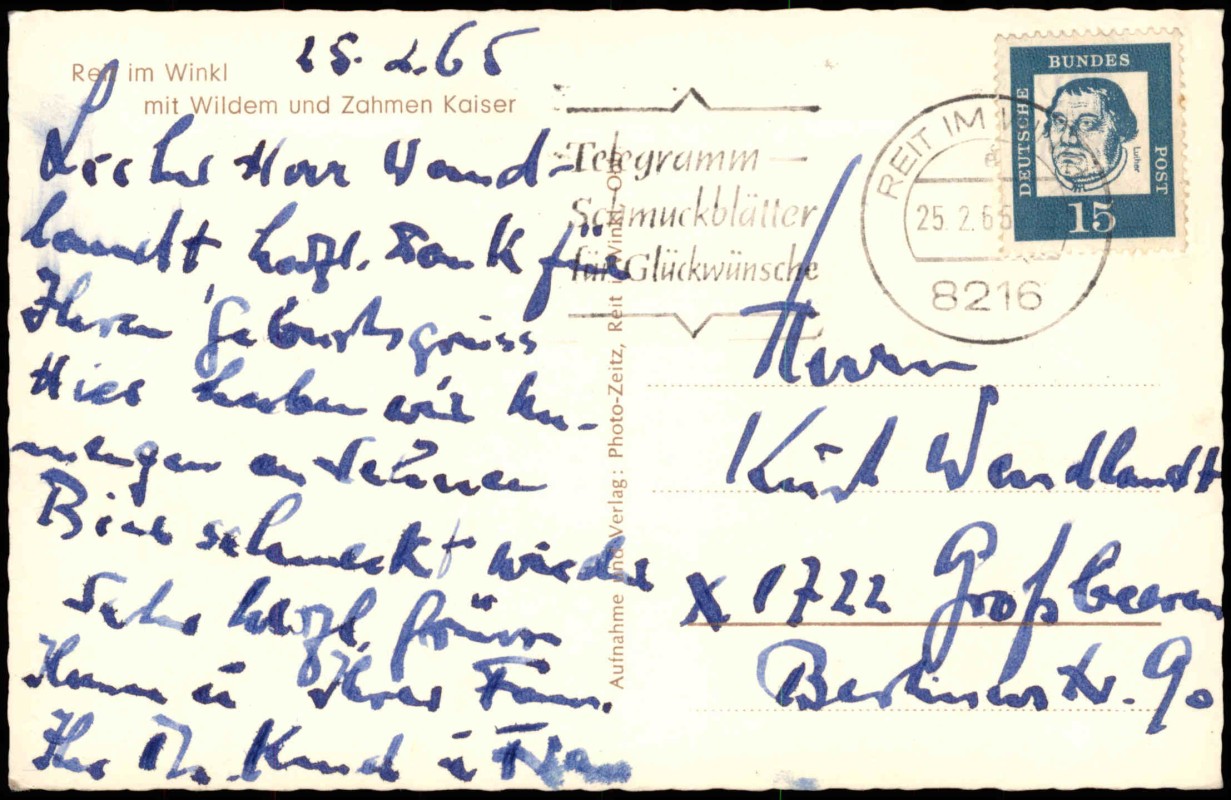 Reit im Winkl
mit Wildem und Zahmen Kaiser
25. 2. 65
Lieber Herr Wend-
landt herzl. Dank für
Ihren Geburtsgruss
Hier haben wir
Bier schmeckt wieder
Sehr herzl. grüssen
Ihnen u Ihrer Fam.
Ihr u Frau
Aufnahme und Verlag: Photo-Zeitz, Reit i. Winkl-Ob
Telegramm –
Schmuckblätter
für Glückwünsche
REIT IM WINKL
25. 2. 65
8216
DEUTSCHE
BUNDES
POST
Luther
15
Herrn
Kurt Wendlandt
X 1722 Großbeeren
Berlinerstr. 90